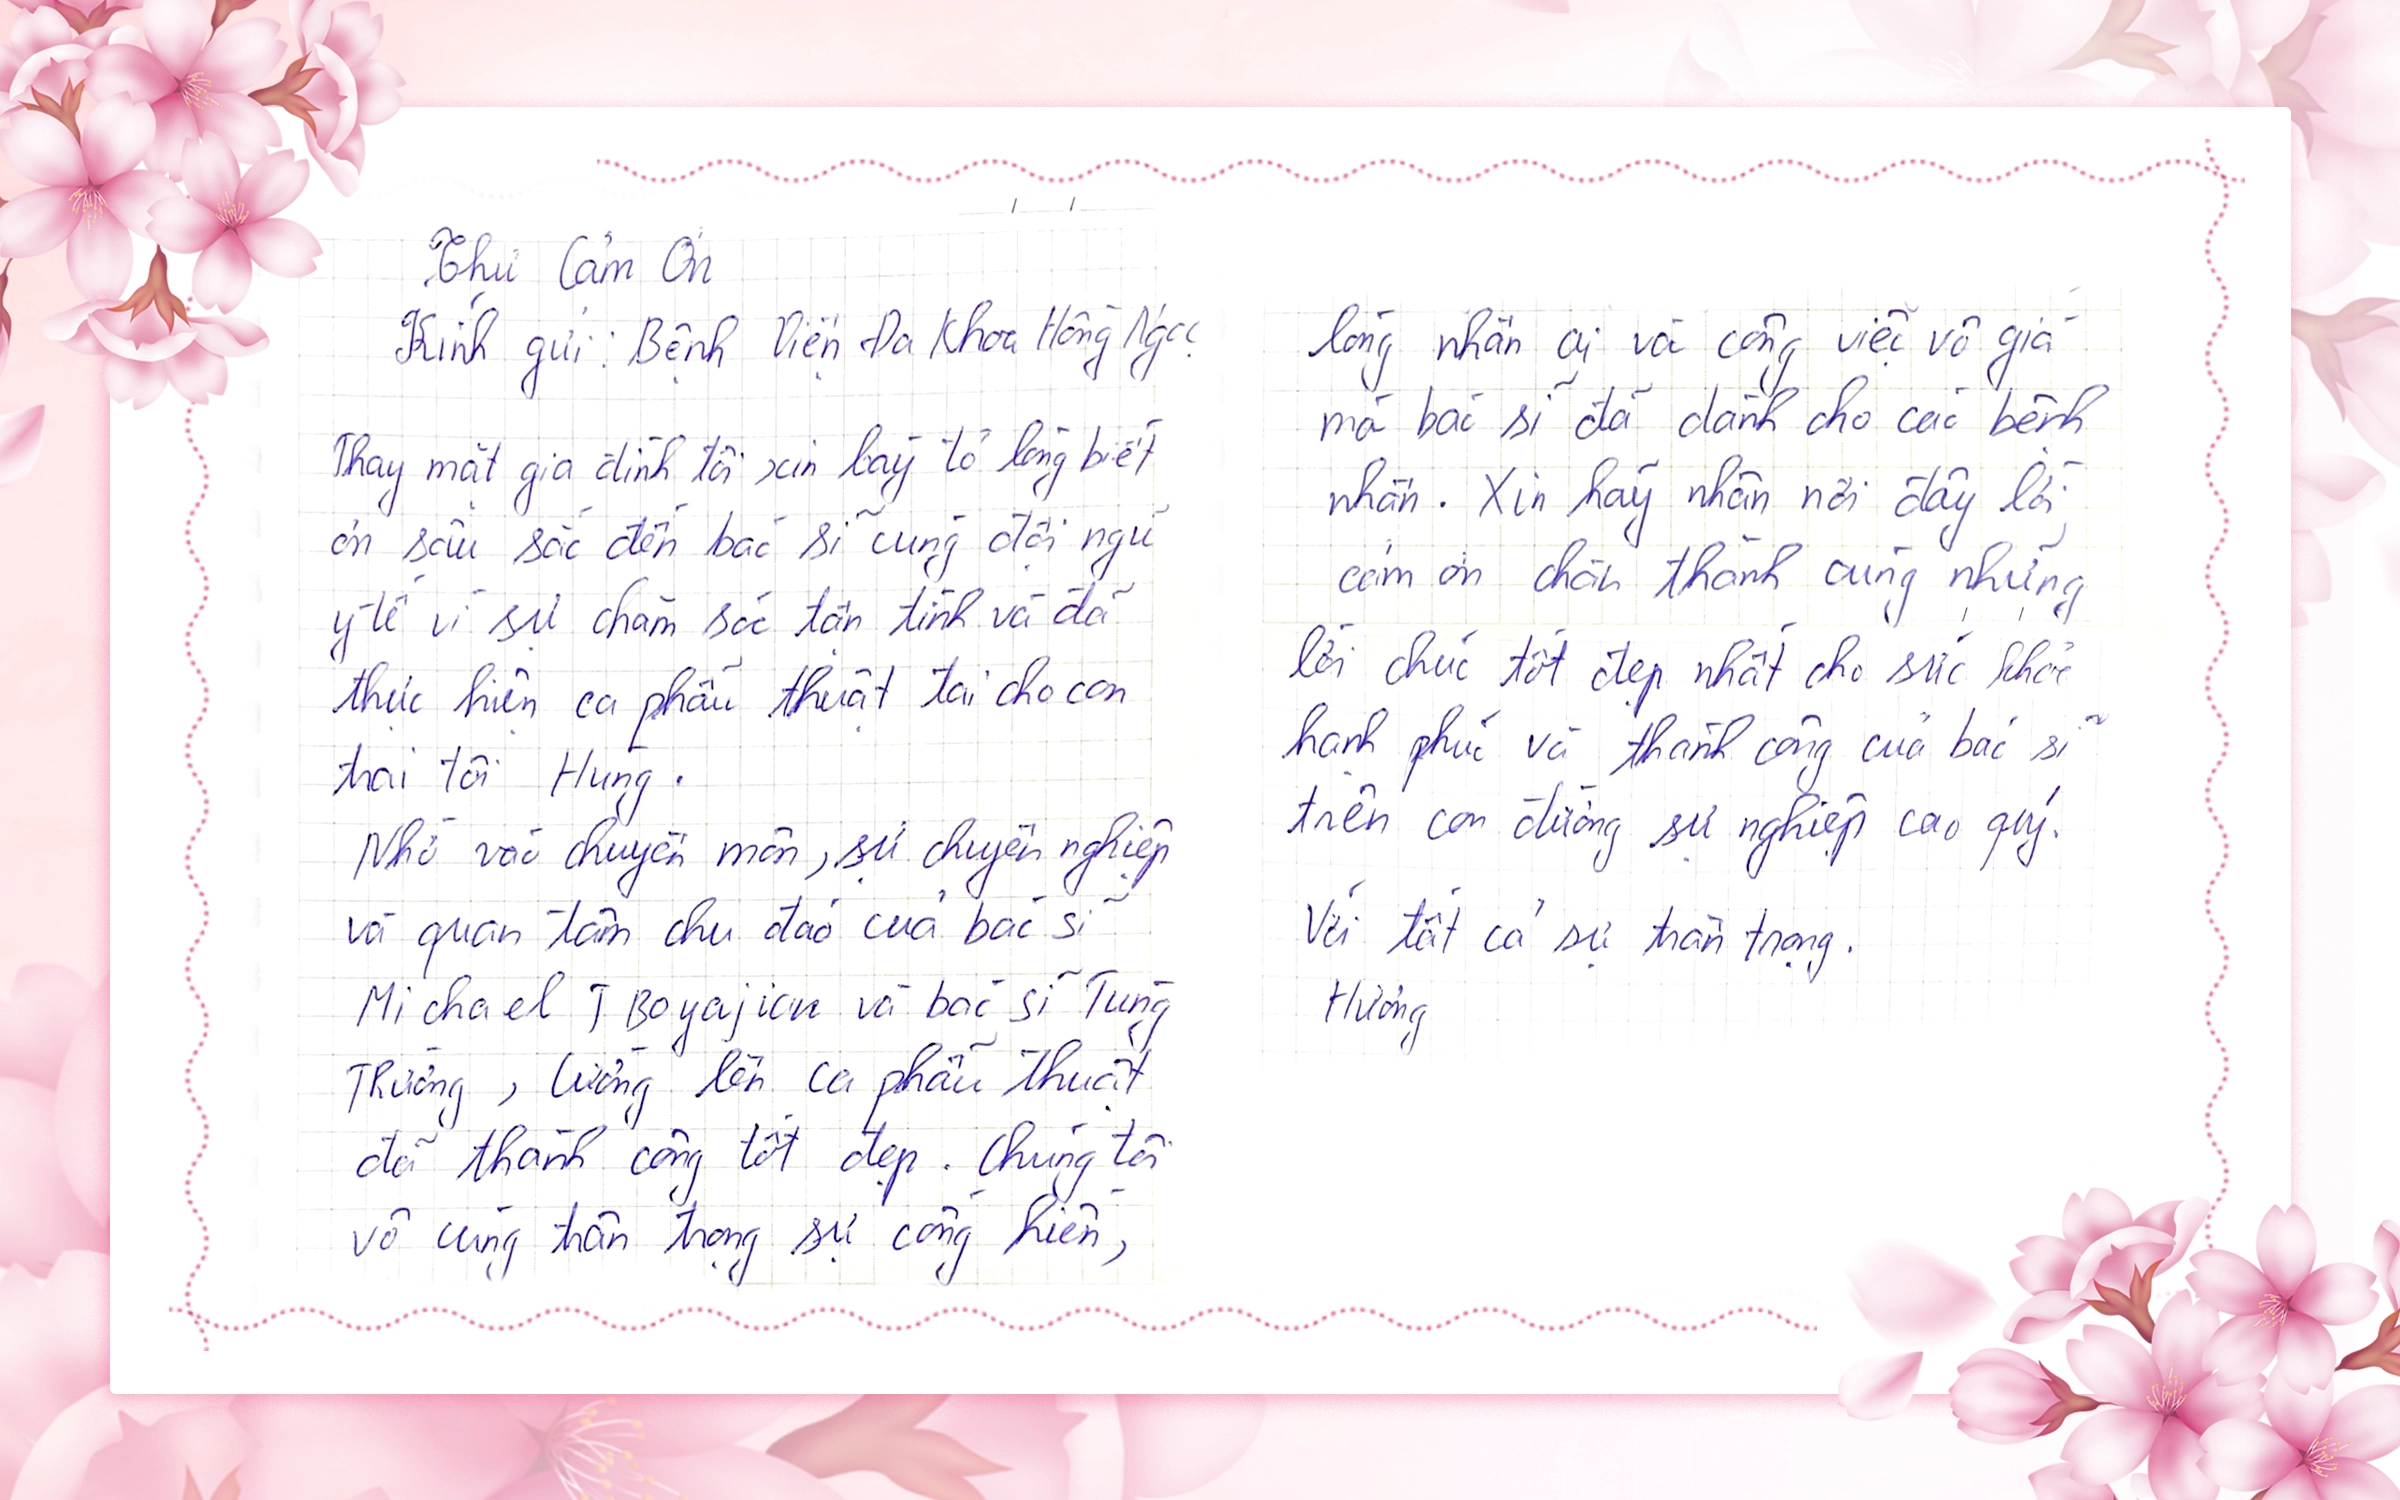 Thư Cảm Ơn
Kính gửi: Bệnh Viện Đa Khoa Hồng Ngọc
Thay mặt gia đình tôi xin bày tỏ lòng biết
ơn sâu sắc đến bác sĩ cùng đội ngũ
y tế vì sự chăm sóc tận tình và đã
thực hiện ca phẫu thuật tai cho con
trai tôi Hưng.
Nhờ vào chuyên môn, sự chuyên nghiệp
và quan tâm chu đáo của bác sĩ
Michael T Boyajian và bác sĩ Tùng
Thường, Cường lên ca phẫu thuật
đã thành công tốt đẹp. Chúng tôi
vô cùng trân trọng sự cống hiến,
lòng nhân ái và công việc vô giá
mà bác sĩ đã dành cho các bệnh
nhân. Xin hãy nhận nơi đây lời
cảm ơn chân thành cùng những
lời chúc tốt đẹp nhất cho sức khỏe
hạnh phúc và thành công của bác sĩ
trên con đường sự nghiệp cao quý.
Với tất cả sự trân trọng.
Hương